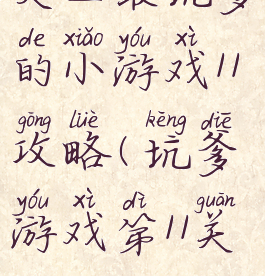 de xiǎo yóu xì
的小游戏11
gōng lüè kēng diē
攻略(坑爹
yóu xì dì guān
游戏第11关